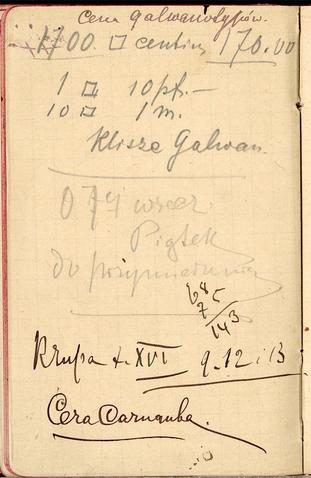 Cena galwanotypów.
1700 □ centim 170.00
1 □ 10 pf. —
10 □ 1 m.
Klisze Galwan.
Piątek
do
68
75
143
Krupa t. XVI 9. 12 i 13
Cera Carnauba.